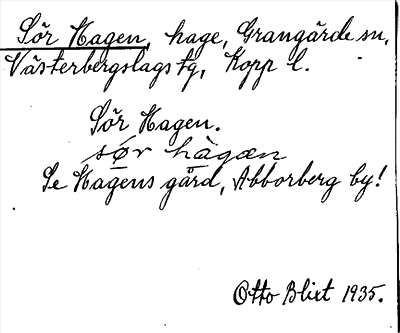 Sör Hagen, hage, Grangärde sn,
Västerbergslags tg, Kopp l.
Sör Hagen.
sør hàgæn
Se Hagens gård, Abborberg by!
Otto Blixt 1935.